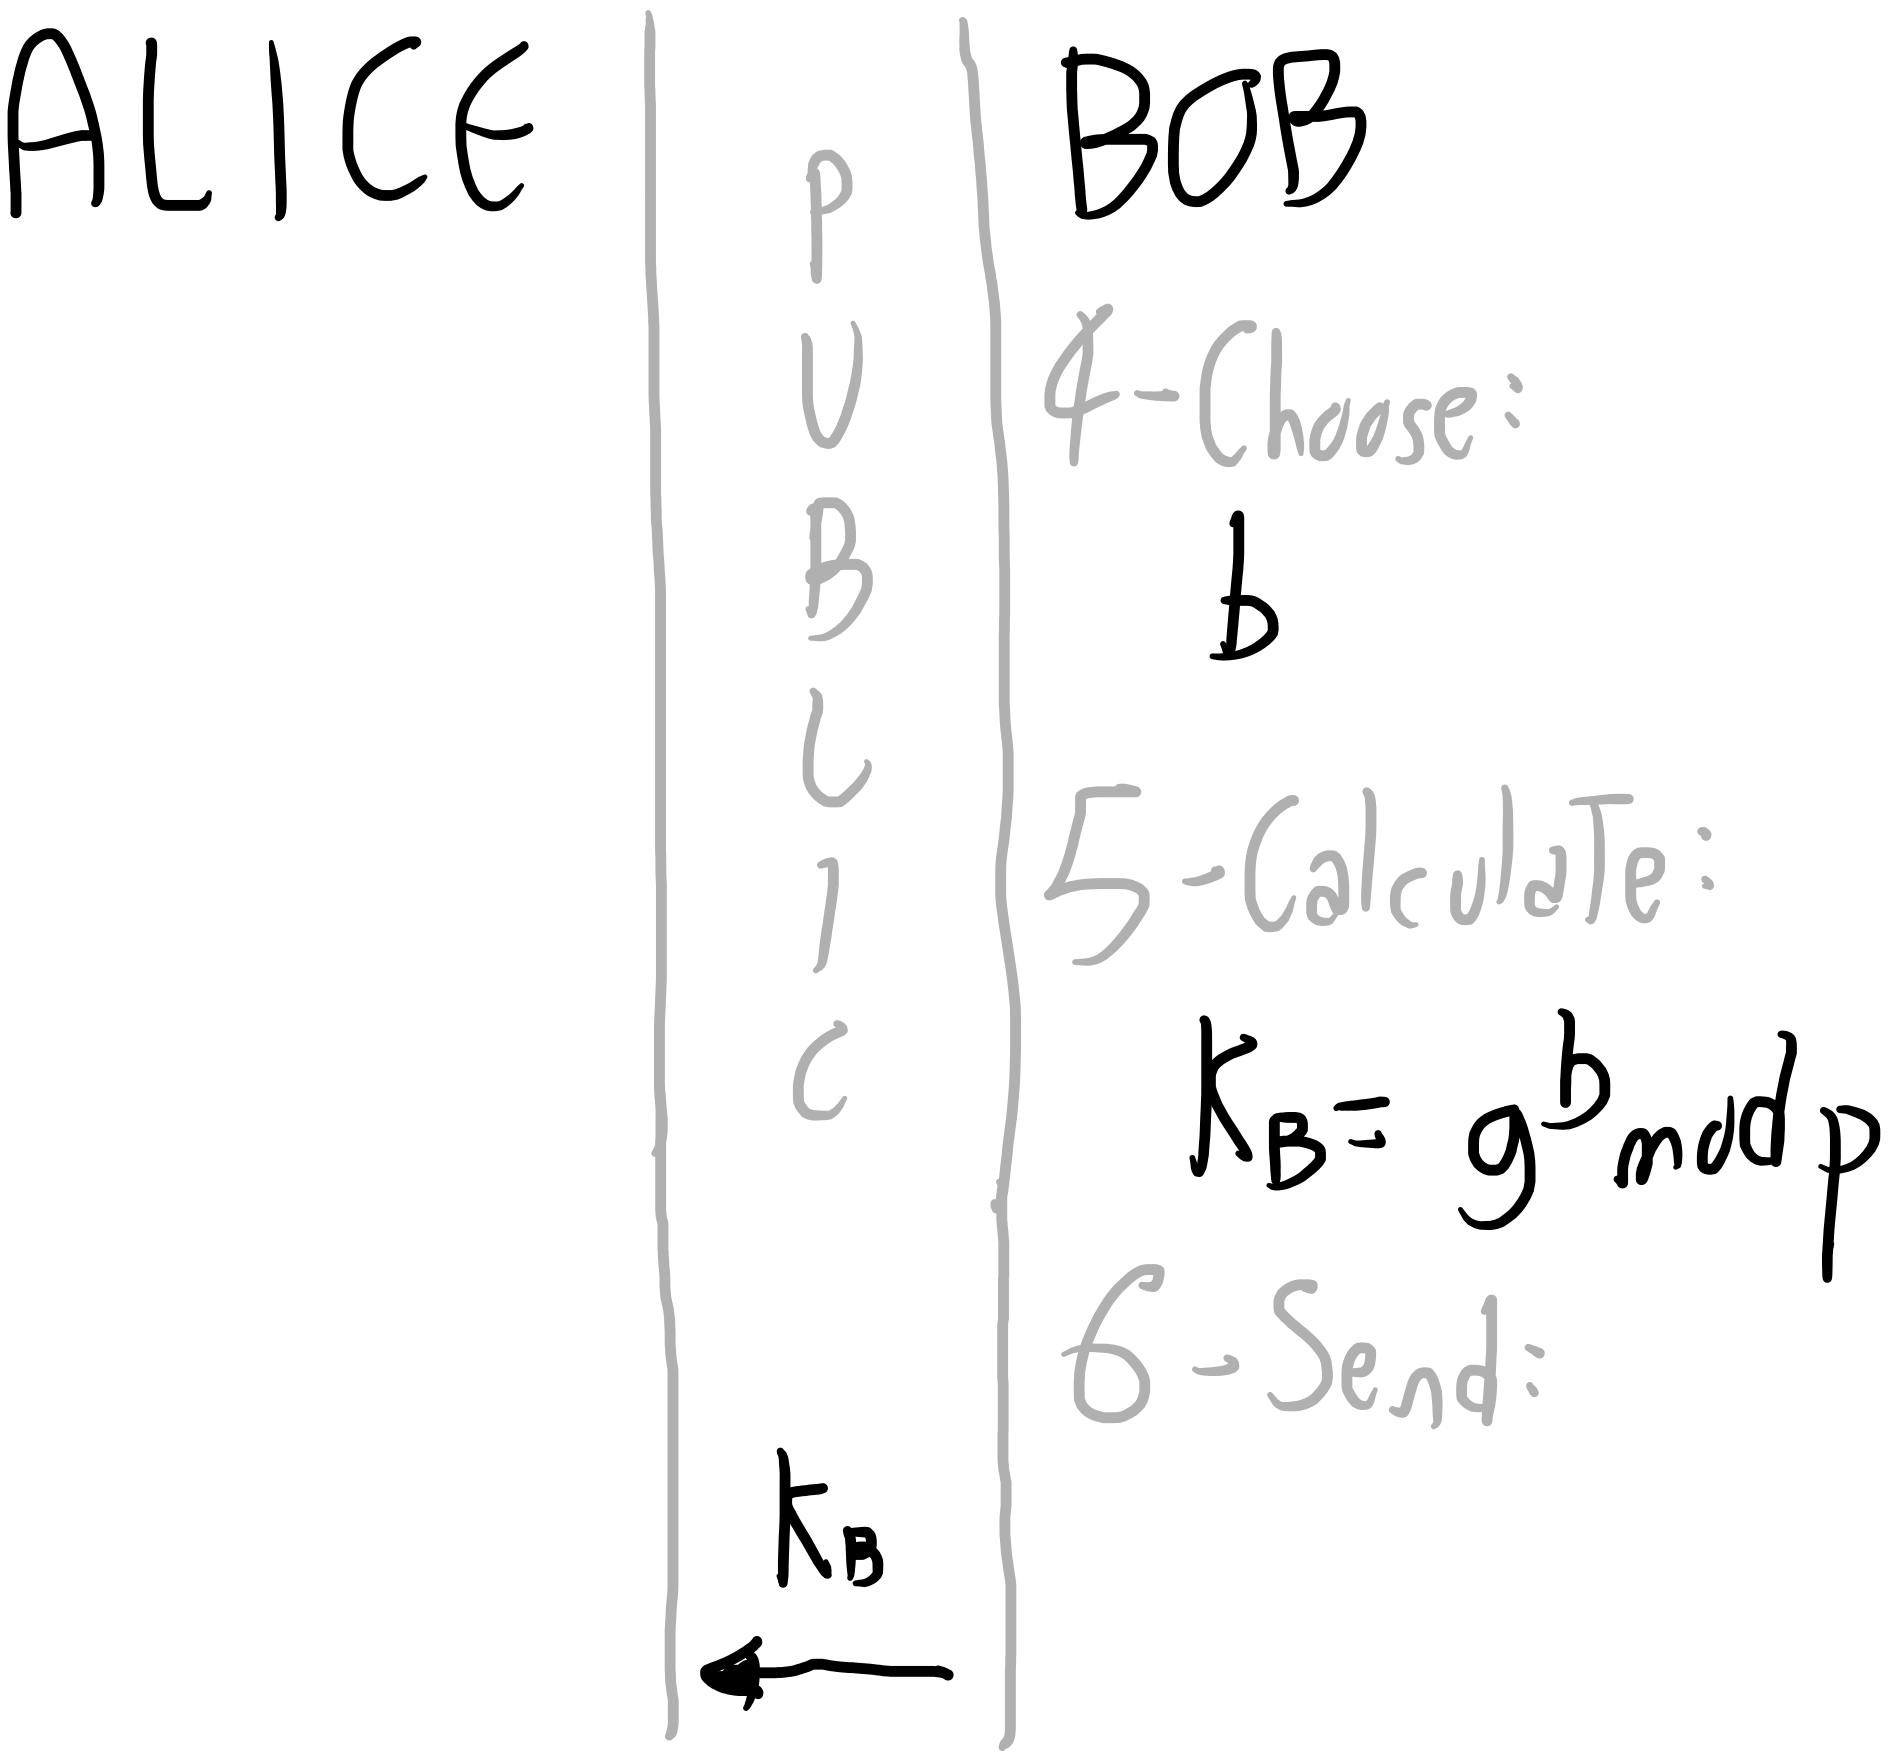 ALICE
PUBLIC
BOB
4-Choose:
b
5-Calculate:
K_B = g^b mod p
6-Send:
K_B